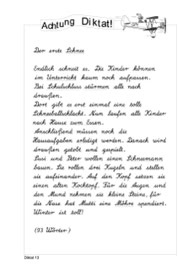 Achtung Diktat!
Der erste Schnee
Endlich schneit es. Die Kinder können
im Unterricht kaum noch aufpassen.
Bei Schulschluss stürmen alle nach
draußen.
Dort gibt es erst einmal eine tolle
Schneeballschlacht. Nun laufen alle Kinder
nach Hause zum Essen.
Anschließend müssen noch die
Hausaufgaben erledigt werden. Danach wird
draußen getobt und gespielt.
Susi und Peter wollen einen Schneemann
bauen. Sie rollen drei Kugeln und stellen
sie aufeinander. Auf den Kopf setzen sie
einen alten Kochtopf. Für die Augen und
den Mund nehmen sie kleine Steine, für
die Nase hat Mutti eine Möhre spendiert.
Winter ist toll!
(93 Wörter)
Diktat 13